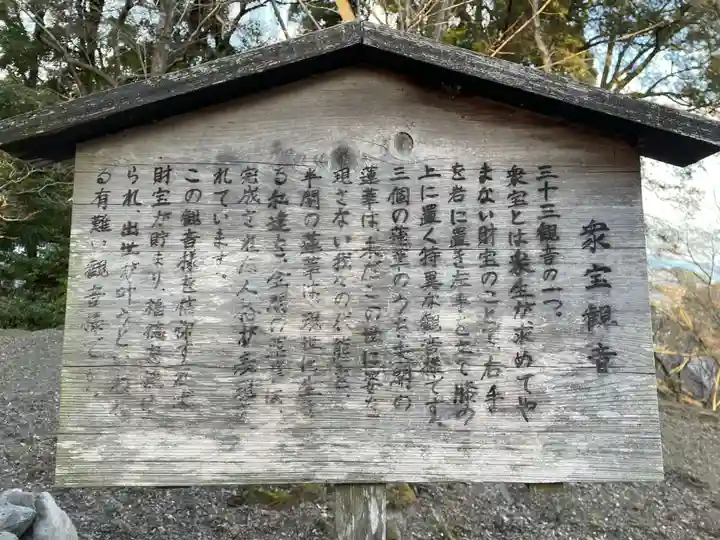 衆宝観音
三十三観音の一つ。
衆宝とは衆生が求めてや
まない財宝のことで、右手
を岩に置き左手を立て膝の
上に置く特異な観音様です。
三個の蓮華のうち未開の
蓮華は、未だこの世に姿を
現さない我々の
半開の蓮華は現世に生き
る私達を、全開の蓮華は、
完成された人格が表現さ
れています。
この観音様を信仰すれば
財宝が貯まり、
られ、出世が叶うと
る有難い観音様です。